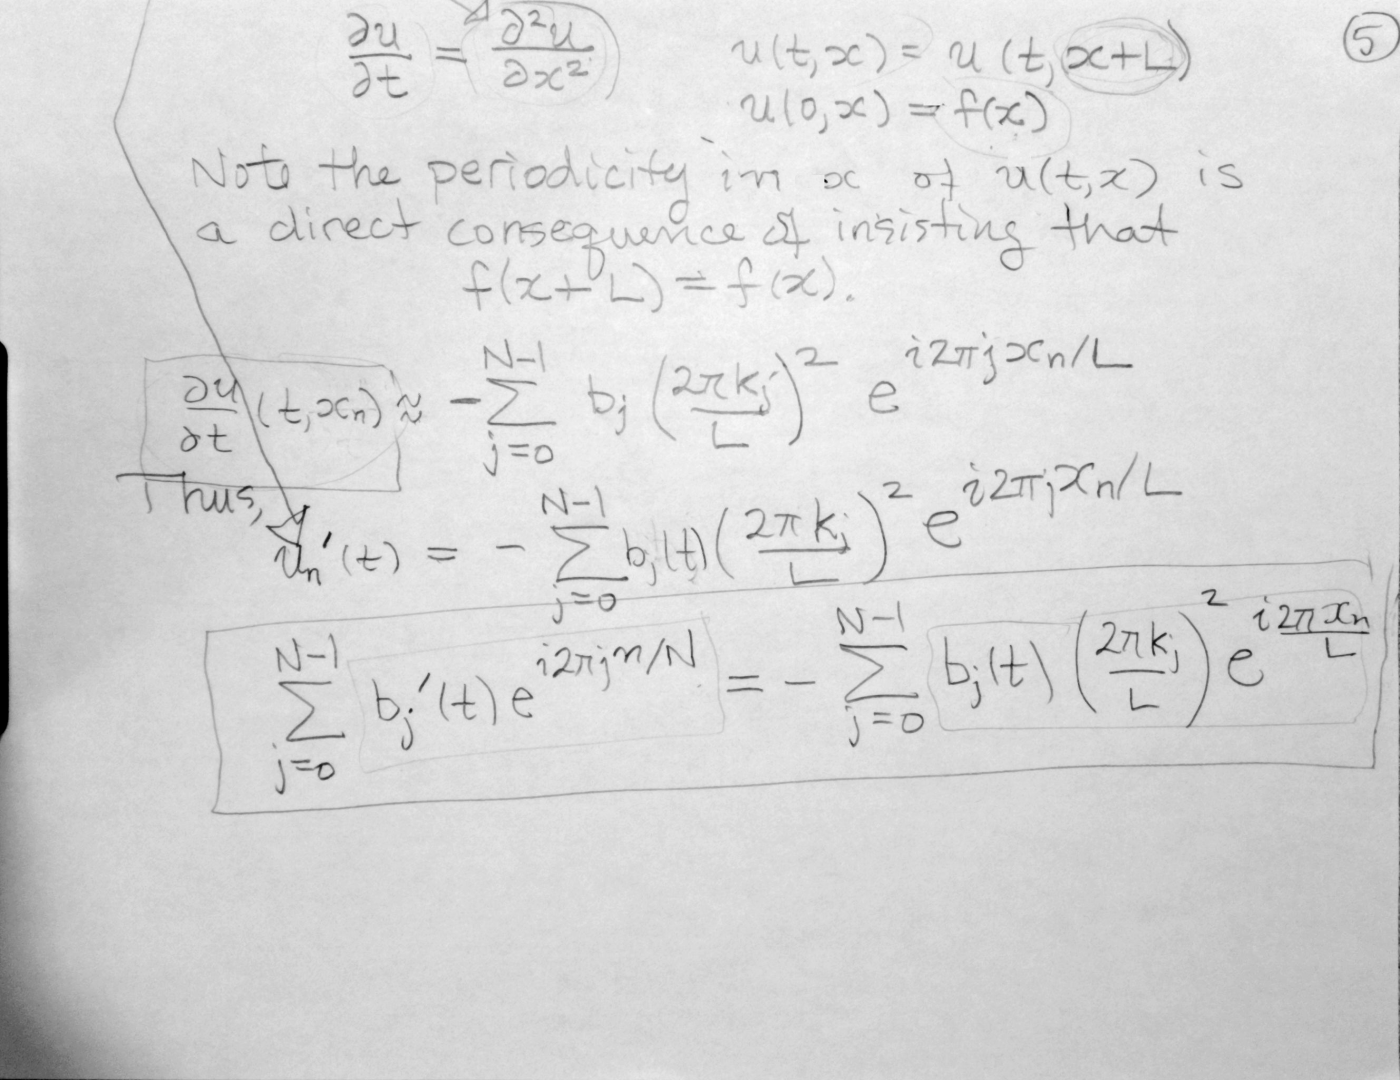 ∂u/∂t = ∂²u/∂x² u(t,x) = u(t, x+L) ⑤
u(0,x) = f(x)
Note the periodicity in x of u(t,x) is
a direct consequence of insisting that
f(x+L) = f(x).
∂u/∂t (t,xₙ) ≈ - ∑_{j=0}^{N-1} b_j (2πk_j/L)² e^{i2πjxₙ/L}
Thus,
uₙ'(t) = - ∑_{j=0}^{N-1} b_j(t) (2πk_j/L)² e^{i2πjxₙ/L}
∑_{j=0}^{N-1} b_j'(t) e^{i2πjn/N} = - ∑_{j=0}^{N-1} b_j(t) (2πk_j/L)² e^{i2πxₙ/L}